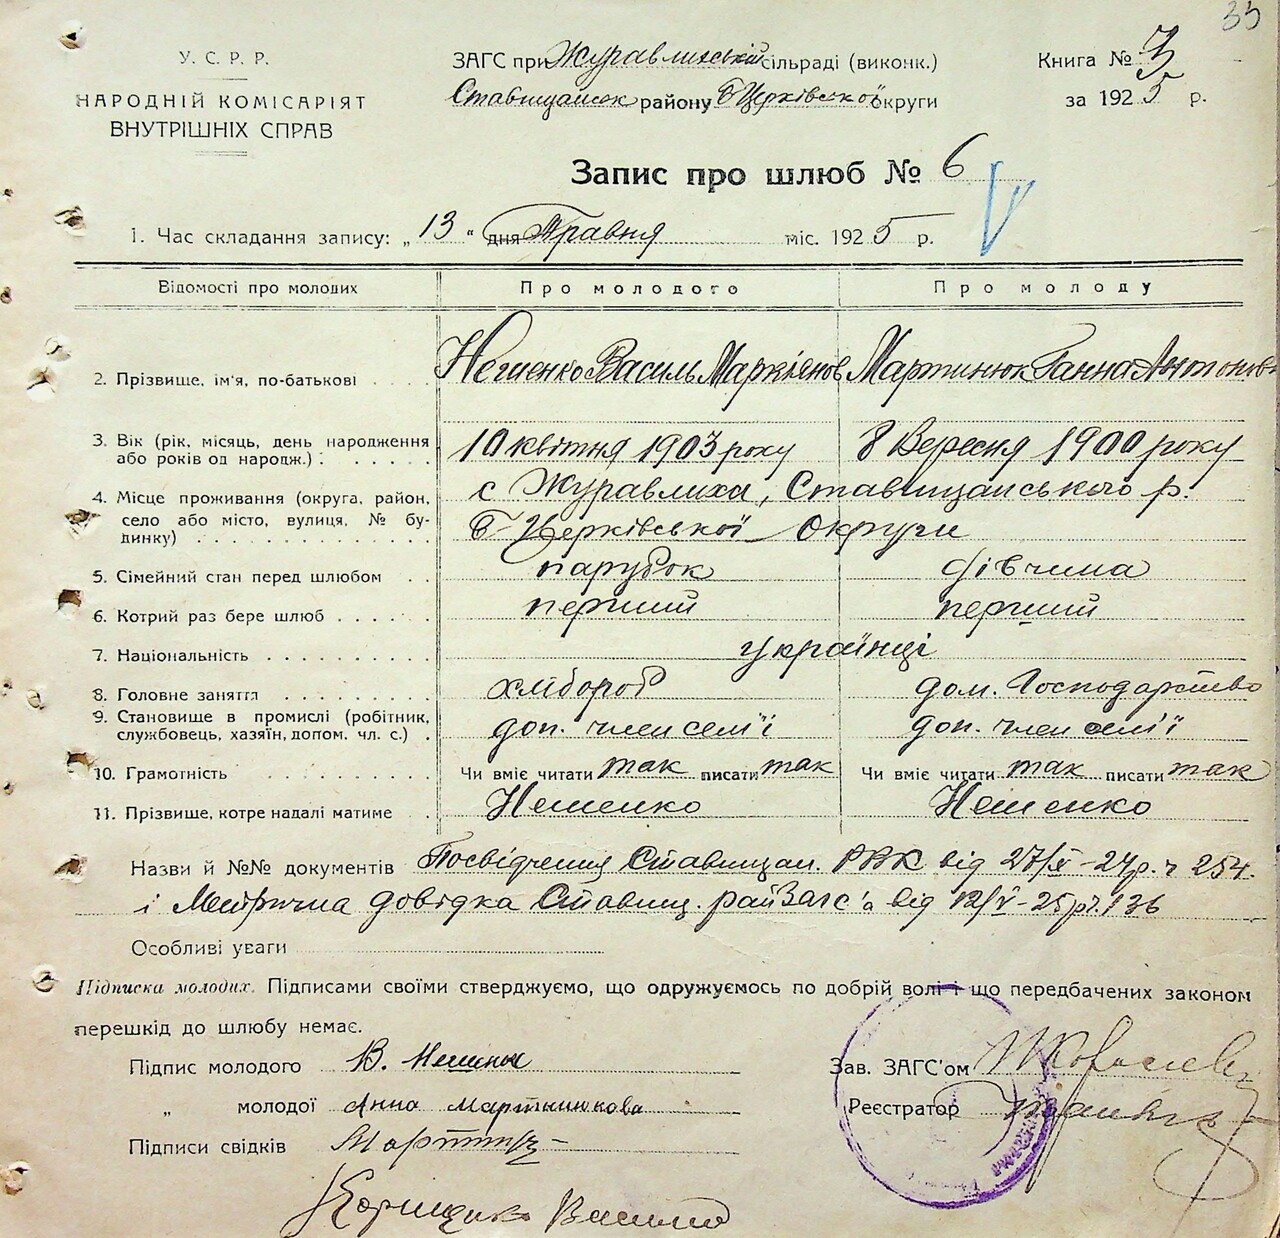 33
У. С. Р. Р.
НАРОДНІЙ КОМІСАРІЯТ
ВНУТРІШНІХ СПРАВ
ЗАГС при Журавлиській сільраді (виконк.)
району Б Церківської округи
Книга №
за 1925 р.
Запис про шлюб № 6
1. Час складання запису: „ 13 “ дня Травня міс. 1925 р.
Відомості про молодих Про молодого Про молоду
2. Прізвище, ім'я, по-батькові . . . . Нешенко Василь Маркіянов Мартинюк Ганна Антоновн
3. Вік (рік, місяць, день народження
або років од народж.) : . . . . . 10 квітня 1903 року 8 Вересня 1900 року
4. Місце проживання (округа, район,
село або місто, вулиця, № бу-
динку) . . . . . . . . . . . .
с Журавлиха, Ставищанського р.
Б-Церківської Округи
5. Сімейний стан перед шлюбом . . парубок дівчина
6. Котрий раз бере шлюб . . . . . . перший перший
7. Національність . . . . . . . . . . українці
8. Головне заняття . . . . . . . . . хлібороб дом. Господарство
9. Становище в промислі (робітник,
службовець, хазяїн, допом. чл. с.) . доп. член сем'ї доп. член сем'ї
10. Грамотність . . . . . . . . . . Чи вміє читати так писати так Чи вміє читати так писати так
11. Прізвище, котре надалі матиме . Нешенко Нешенко
Назви й №№ документів Посвідчення Ставищан. РВК від 27/X-24р. ч 254.
і Метрична довідка Ставищ. райЗагс'а від 12/V-25р ч. 136
Особливі уваги
Підписка молодих. Підписами своїми стверджуємо, що одружуємось по добрій волі і що передбачених законом
перешкід до шлюбу немає.
Підпис молодого В.
„ молодої Анна Мартынюкова
Підписи свідків
Зав. ЗАГС'ом
Реєстратор
Василь